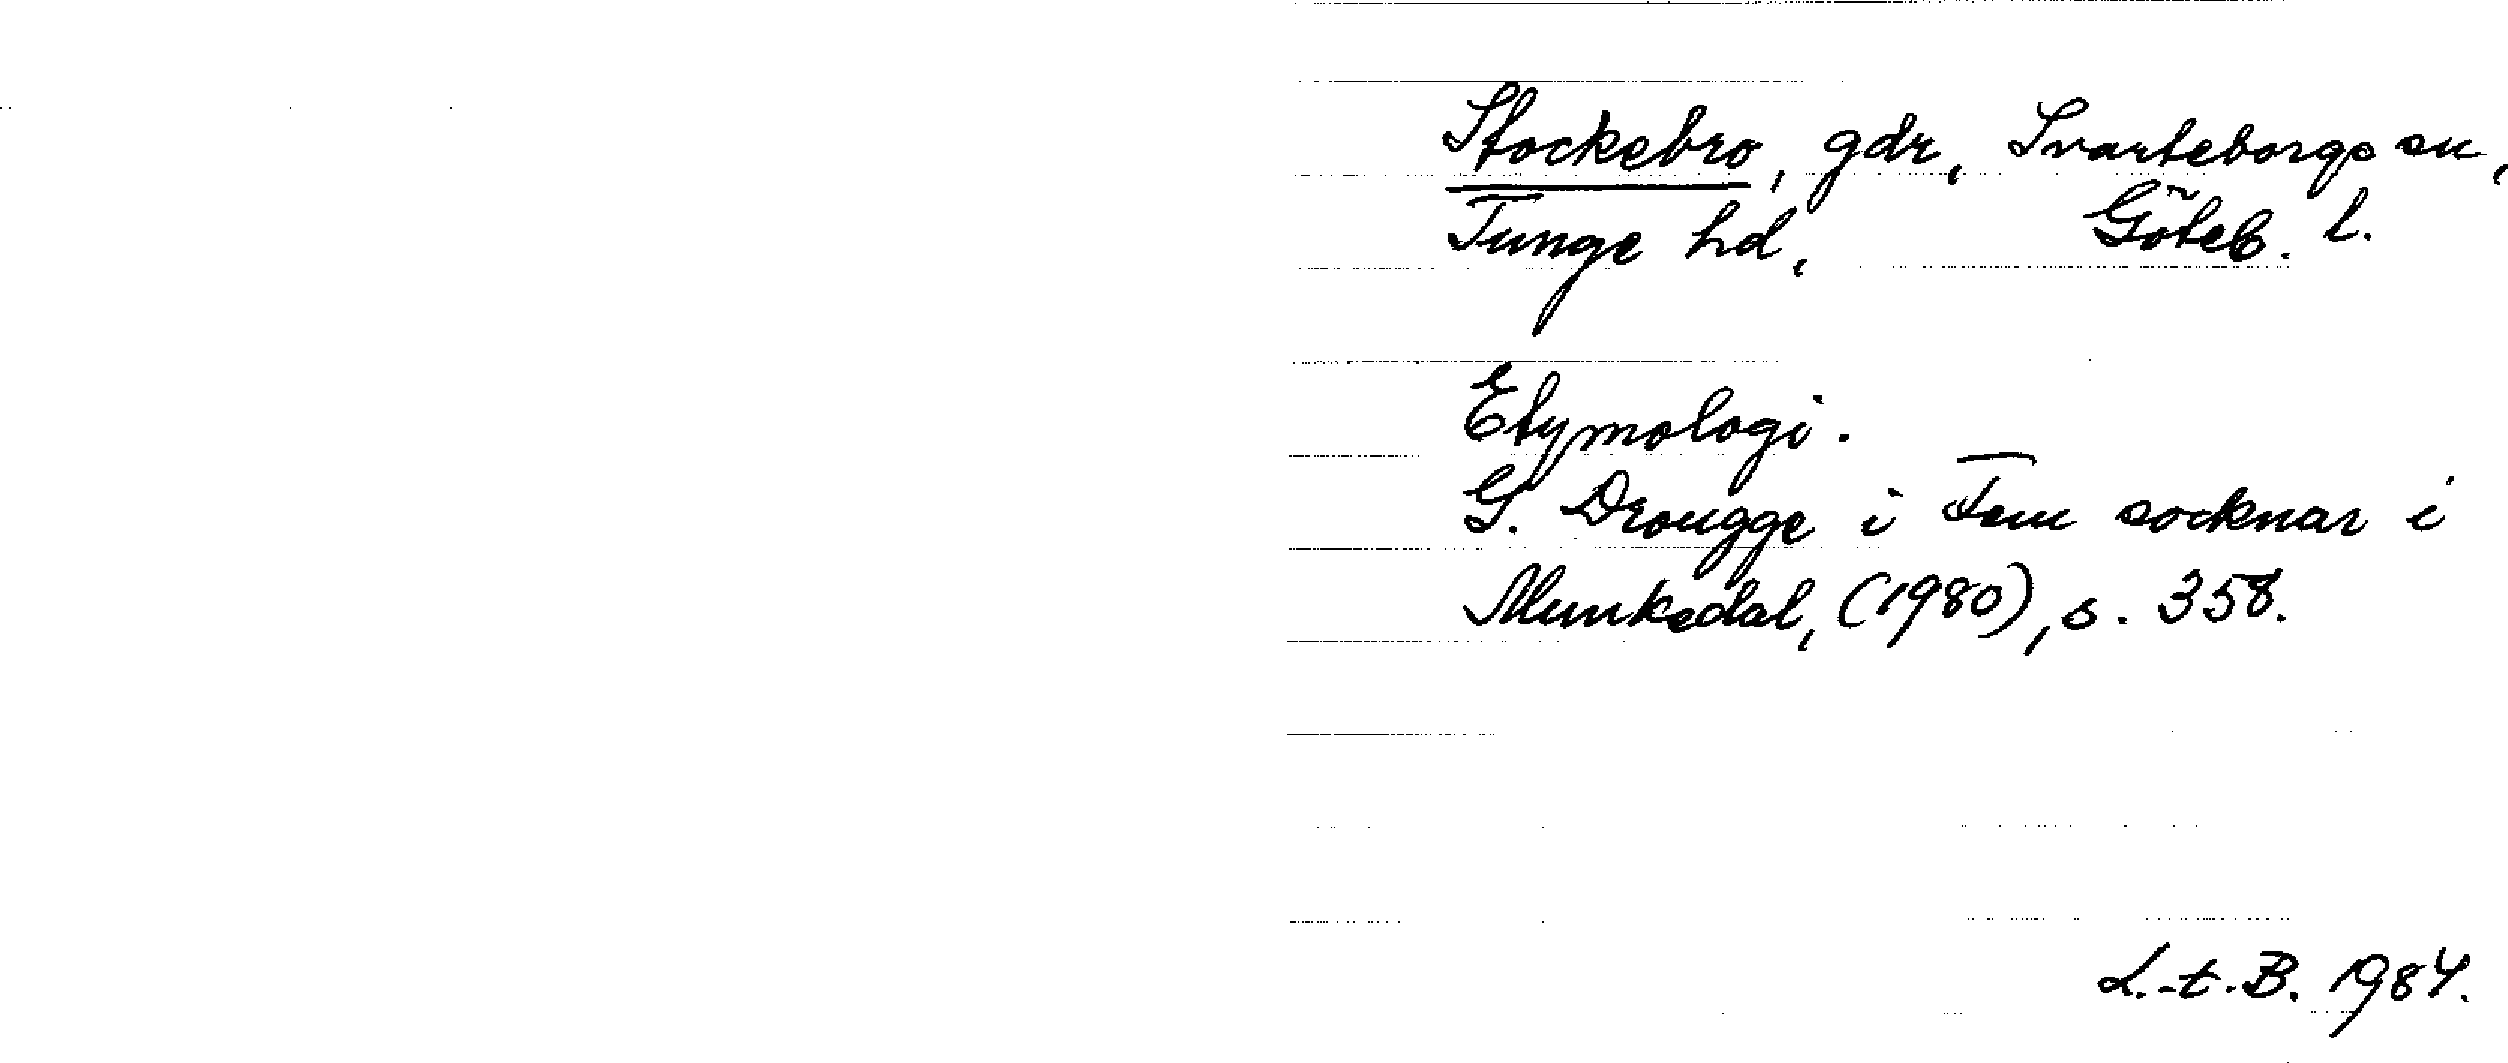 Stockebro, gdr, Svarteborgs sn,
Tunge hd, Göteb. l.
Etymologi.
G. Drougge i Fem socknar i
Munkedal, (1980), s. 358.
L.-t. B. 1984.